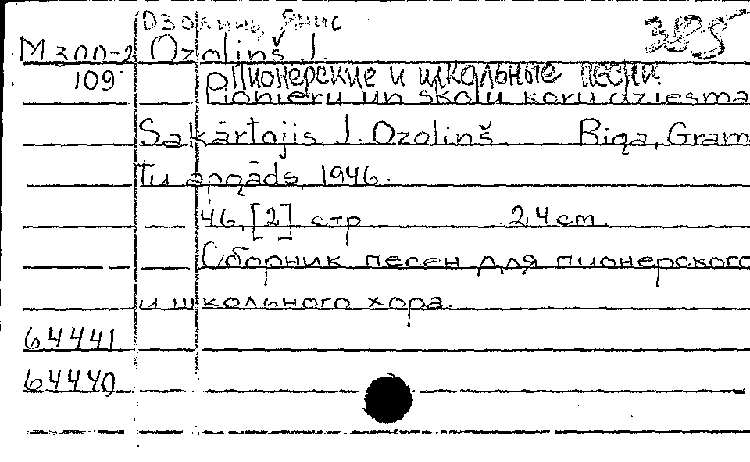 Озолинь Янис
385
М 300-2 Ozoliņš J.
109 Пионерские и школьные песни.
Pionieru un skolu koru dziesma
Sakārtojis J. Ozoliņš. Riga, Gram
tu apgāds, 1946.
46, [2] стр 24 cm
Сборник песен для пионерского
и школьного хора.
64441
64440